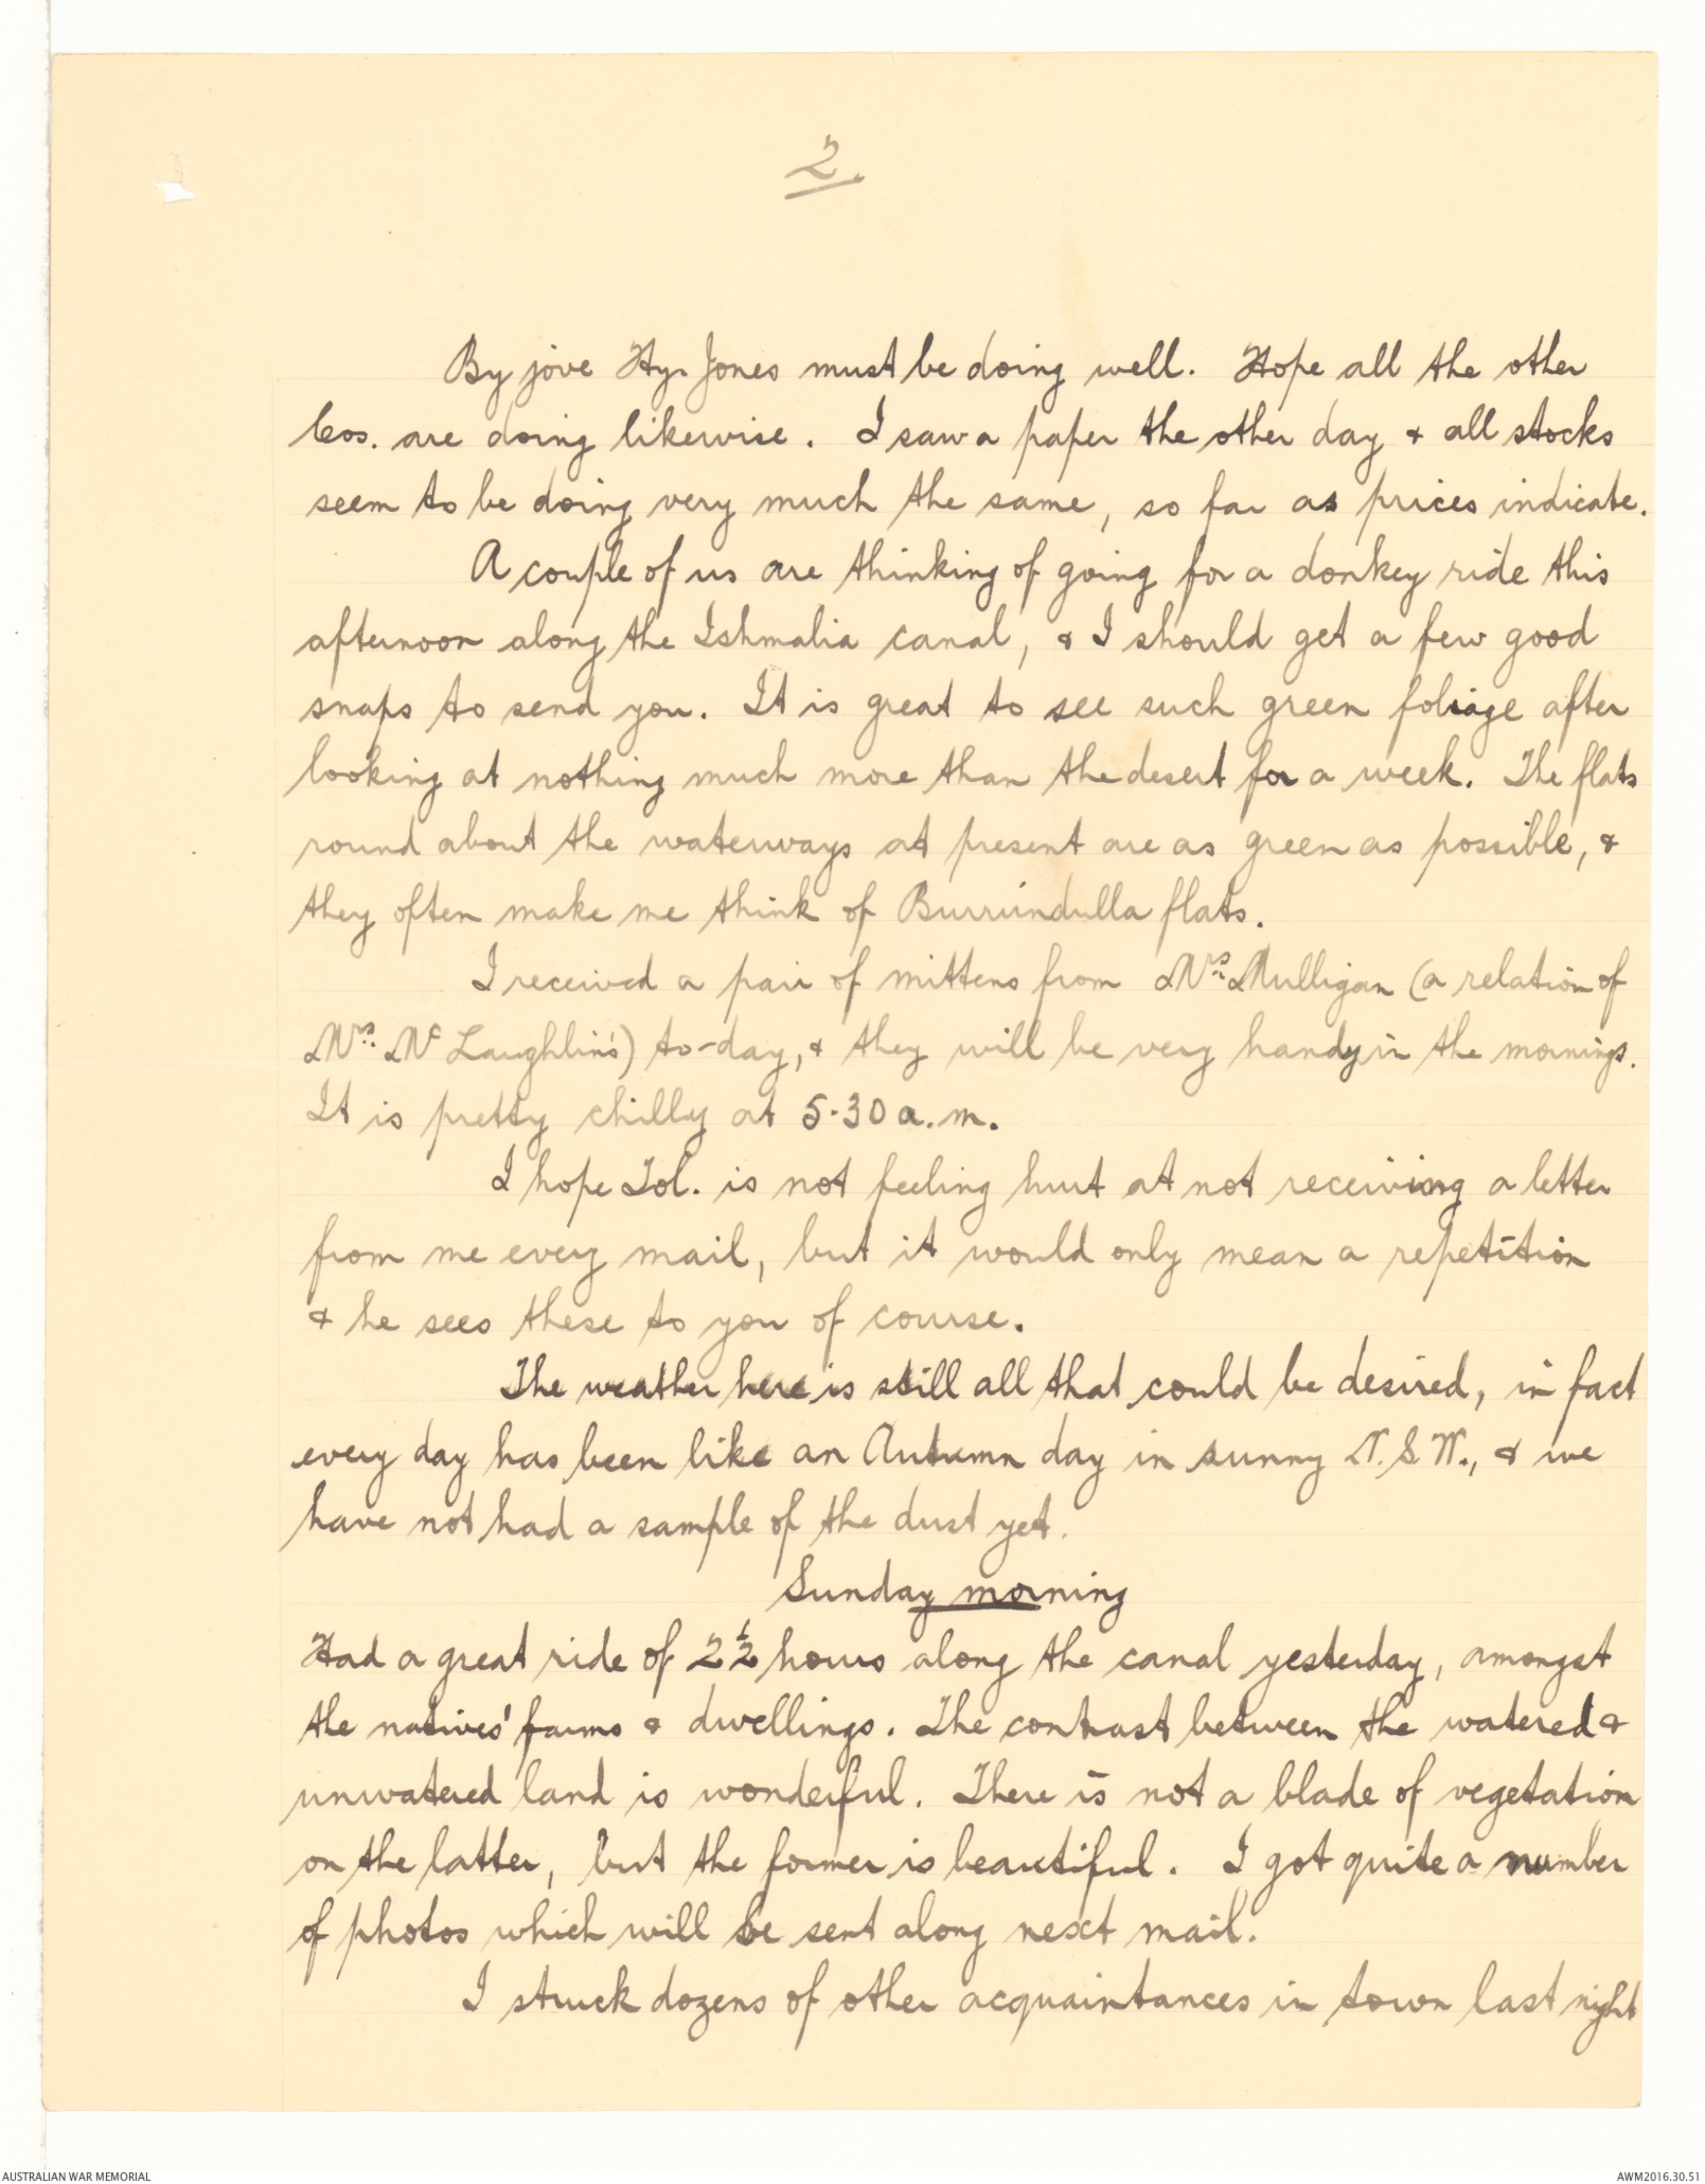 2.
By jove Hy. Jones must be doing well. Hope all the other
Cos. are doing likewise. I saw a paper the other day & all stocks
seem to be doing very much the same, so far as prices indicate.
A couple of us are thinking of going for a donkey ride this
afternoon along the Ishmalia canal, & I should get a few good
snaps to send you. It is great to see such green foliage after
looking at nothing much more than the desert for a week. The flats
round about the waterways at present are as green as possible, &
they often make me think of Burrundulla flats.
I received a pair of mittens from Mrs. Mulligan (a relation of
Mrs. McLaughlin's) to-day, & they will be very handy in the mornings.
It is pretty chilly at 5.30 a.m.
I hope Tol. is not feeling hurt at not receiving a letter
from me every mail, but it would only mean a repetition
& he sees these to you of course.
The weather here is still all that could be desired, in fact
every day has been like an Autumn day in sunny N.S.W., & we
have not had a sample of the dust yet.
Sunday morning
Had a great ride of 2½ hours along the canal yesterday, amongst
the natives' farms & dwellings. The contrast between the watered &
unwatered land is wonderful. There is not a blade of vegetation
on the latter, but the former is beautiful. I got quite a number
of photos which will be sent along next mail.
I struck dozens of other acquaintances in town last night
AUSTRALIAN WAR MEMORIAL
AWM2016.30.51